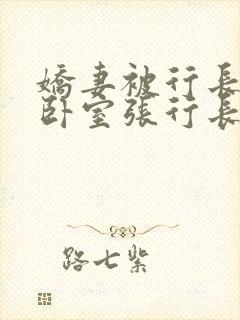 嬌妻被行長
卧室張行長
路七紫